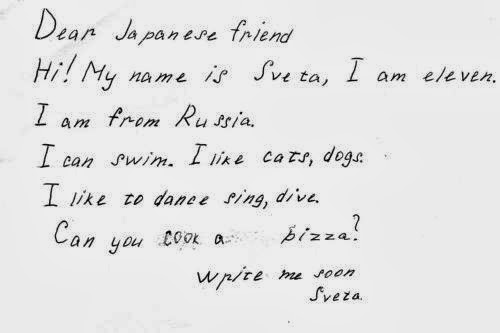 Dear Japanese friend
Hi! My name is Sveta, I am eleven.
I am from Russia.
I can swim. I like cats, dogs.
I like to dance sing, dive.
Can you cook a pizza?
Write me soon
Sveta.